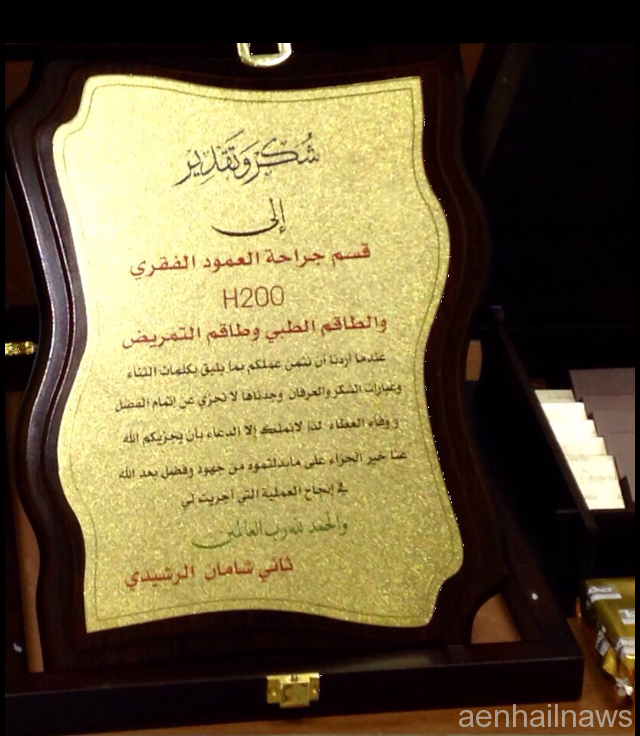 شكر وتقدير
إلى
قسم جراحة العمود الفقري
H200
والطاقم الطبي وطاقم التمريض
عندما أردنا أن نثمن عملكم بما يليق بكلمات الثناء
وعبارات الشكر والعرفان وجدناها لا تجزي عن إتمام الفضل
ووفاء العطاء لذا لانملك إلا الدعاء بأن يجزيكم الله
عنا خير الجزاء على مابذلتموه من جهود وفضل بعد الله
في إنجاح العملية التي أجريت لي
والحمد لله رب العالمين
ثاني شامان الرشيدي
aenhailnaws